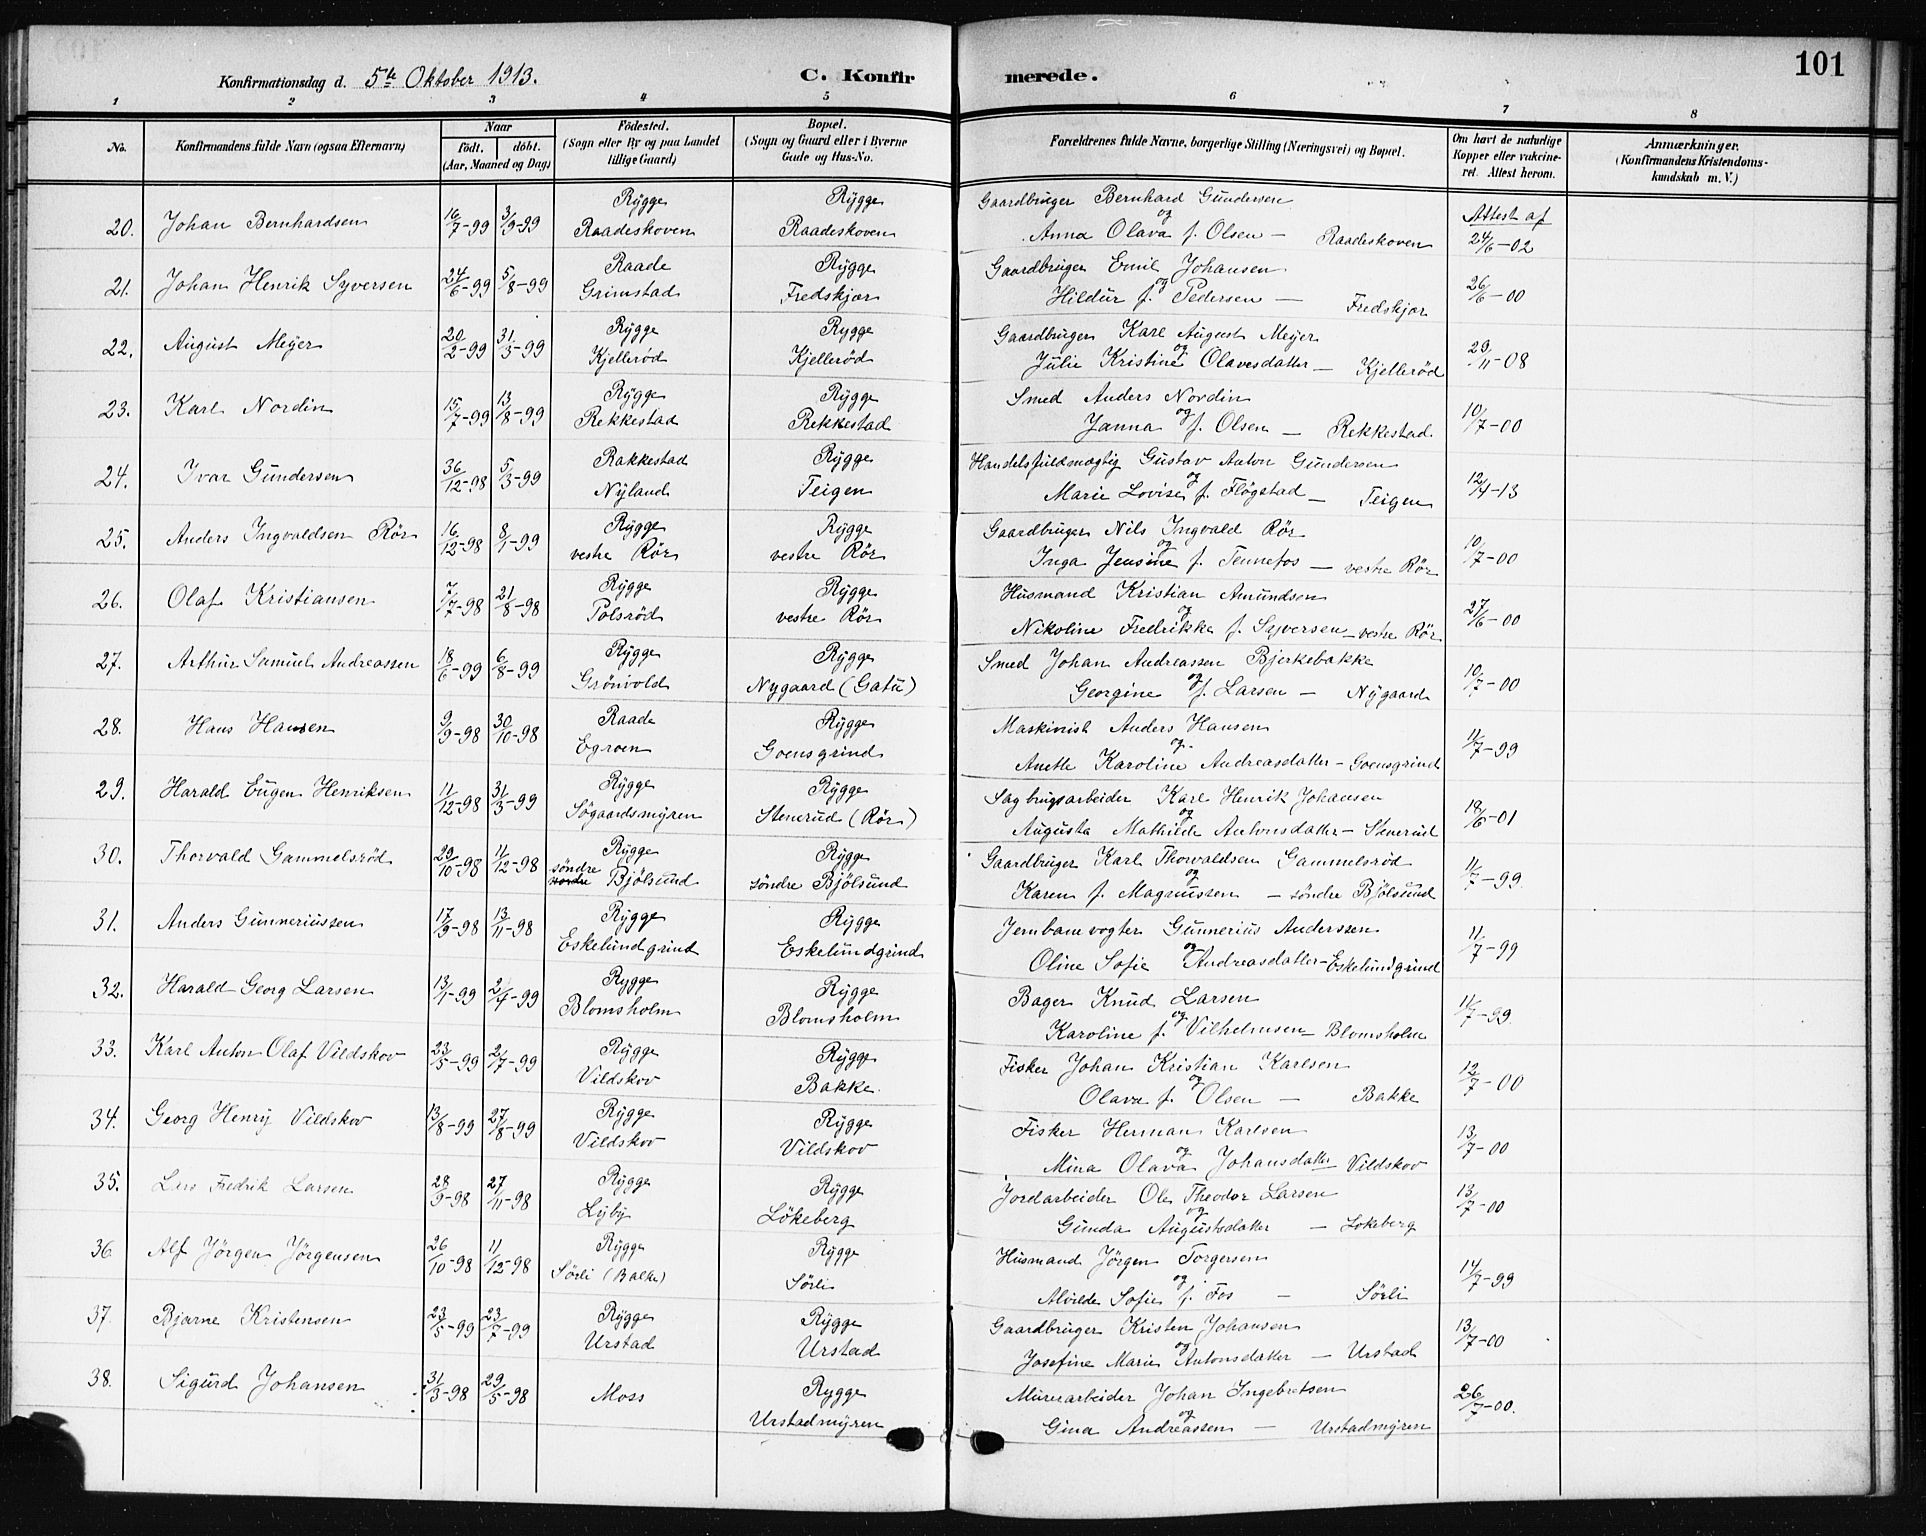 101
Konfirmationsdag d. 5te Oktober 1913. C. Konfir merede.
1 2 3 4 5 6 7 8
No. Konfirmandens fulde Navn (ogsaa Efternavn) Naar født. døbt. (Aar, Maaned og Dag) Fødested. (Sogn eller By og paa Landet tillige Gaard) Bopæl. (Sogn og Gaard eller i Byerne Gade og Hus-No. Forældrenes fulde Navne, borgerlige Stilling (Næringsvei) og Bopæl. Om havt de naturlige Kopper eller vakcineret. Attest herom. Anmærkninger. (Konfirmandens Kristendomskundskab m. V.)
Rygge Rygge Gaardbruger Bernhard Gundersen Attest af
20. Johan Bernhardsen 16/7-99 3/9-99 Raadeskoven Raadeskoven og Anna Olava f. Olsen - Raadeskoven 24/6-02
Raade Rygge Gaardbruger Emil Johansen
21. Johan Henrik Syversen 24/6-99 5/8-99 Grimstad Fredskjær og Hildur f. Pedersen - Fredskjær 26/6-00
Rygge Rygge Gaardbruger Karl August Meyer
22. August Meyer 20/2-99 31/3-99 Kjellerød Kjellerød og Julie Kristine Olavesdatter - Kjellerød 29/11-08
Rygge Rygge Smed Anders Nordin
23. Karl Nordin 15/7-99 13/8-99 Rekkestad Rekkestad og Janna f. Olsen - Rekkestad 10/7-00
Rakkestad Rygge Handelsfuldmægtig Gustav Anton Gundersen
24. Ivar Gundersen 36/12-98 5/3-99 Nyland Teigen og Marie Lovise f. Fløgstad - Teigen 12/4-13
Rygge Rygge Gaardbruger Nils Ingvald Rör
25. Anders Ingvaldsen Rör 16/12-98 8/1-99 vestre Rör vestre Rör og Inga Jensine f. Tennefos - vestre Rör 10/7-00
Rygge Rygge Husmand Kristian Amundsen
26. Olaf Kristiansen 7/7-98 21/8-98 Polsröd vestre Rör og Nikoline Fredrikke f. Syversen - vestre Rör 27/6-00
Rygge Rygge Smed Johan Andreassen Bjerkebakke
27. Arthur Samuel Andreassen 18/6-99 6/8-99 Grönvold Nygaard (Gatu) og Georgine f. Larsen - Nygaard 10/7-00
Raade Rygge Maskinist Anders Hansen
28. Hans Hansen 9/9-98 30/10-98 Egroen Goensgrind og Anette Karoline Andreasdatter - Goensgrind 11/7-99
Rygge Rygge Sagbrugsarbeider Karl Henrik Johansen
29. Harald Eugen Henriksen 11/12-98 31/3-99 Sögaardsmyren Stenerud (Rör) og Augusta Mathilde Antonsdatter - Stenerud 18/6-01
Rygge Rygge Gaardbruger Karl Thorvaldsen Gammelsröd
30. Thorvald Gammelsröd 29/10-98 11/12-98 söndre nordre Bjölsund söndre Bjölsund og Karen f. Magnussen - söndre Bjölsund 11/7-99
Rygge Rygge Jernbanevogter Gunnerius Anderssen
31. Anders Gunneriussen 17/9-98 13/11-98 Eskelundgrind Eskelundgrind og Oline Sofie Andreasdatter - Eskelundgrind 11/7-99
Rygge Rygge Bager Knud Larsen
32. Harald Georg Larsen 13/1-99 2/4-99 Blomsholm Blomsholm og Karoline f. Vilhelmsen - Blomsholm 11/7-99
Rygge Rygge Fisker Johan Kristian Karlsen
33. Karl Anton Olaf Vildskov 23/5-99 2/7-99 Vildskov Bakke og Olava f. Olsen - Bakke 12/7-00
Rygge Rygge Fisker Herman Karlsen
34. Georg Henry Vildskov 13/8-99 27/8-99 Vildskov Vildskov og Mina Olava Johansdatter Vildskov 13/7-00
Rygge Rygge Jordarbeider Ole Theodor Larsen
35. Lars Fredrik Larsen 28/9-98 27/11-98 Lyby Lökeberg og Gunda Augustsdatter - Lokeberg 13/7-00
Rygge Rygge Husmand Jörgen Torgersen
36 Alf Jörgen Jörgensen 26/10-98 11/12-98 Sörli (Balke) Sörli og Alvilde Sofie f. Fos - Sörli 14/7-99
Rygge Rygge Gaardbruger Kristen Johansen
37. Bjarne Kristensen 23/5-99 23/7-99 Urstad Urstad og Josefine Marie Antonsdatter - Urstad 13/7-00
Rygge Murerarbeider Johan Ingebretsen
38. Sigurd Johansen 31/3-98 29/5-98 Moss Urstadmyren og Gina Andreassen - Urstadmyren 26/7-00.